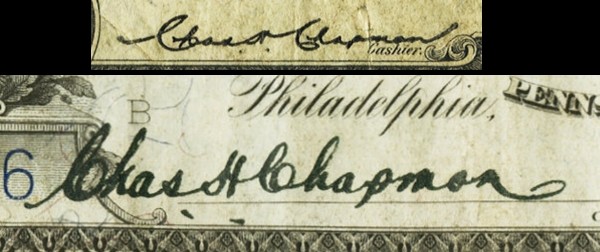 Chas H. Chapman
Cashier.
B
Philadelphia, PENNS
6 Chas H Chapman